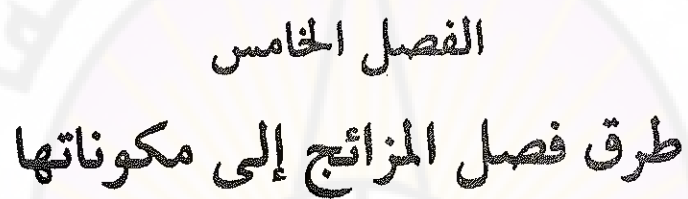 الفصل الخامس
طرق فصل المزائج إلى مكوناتها